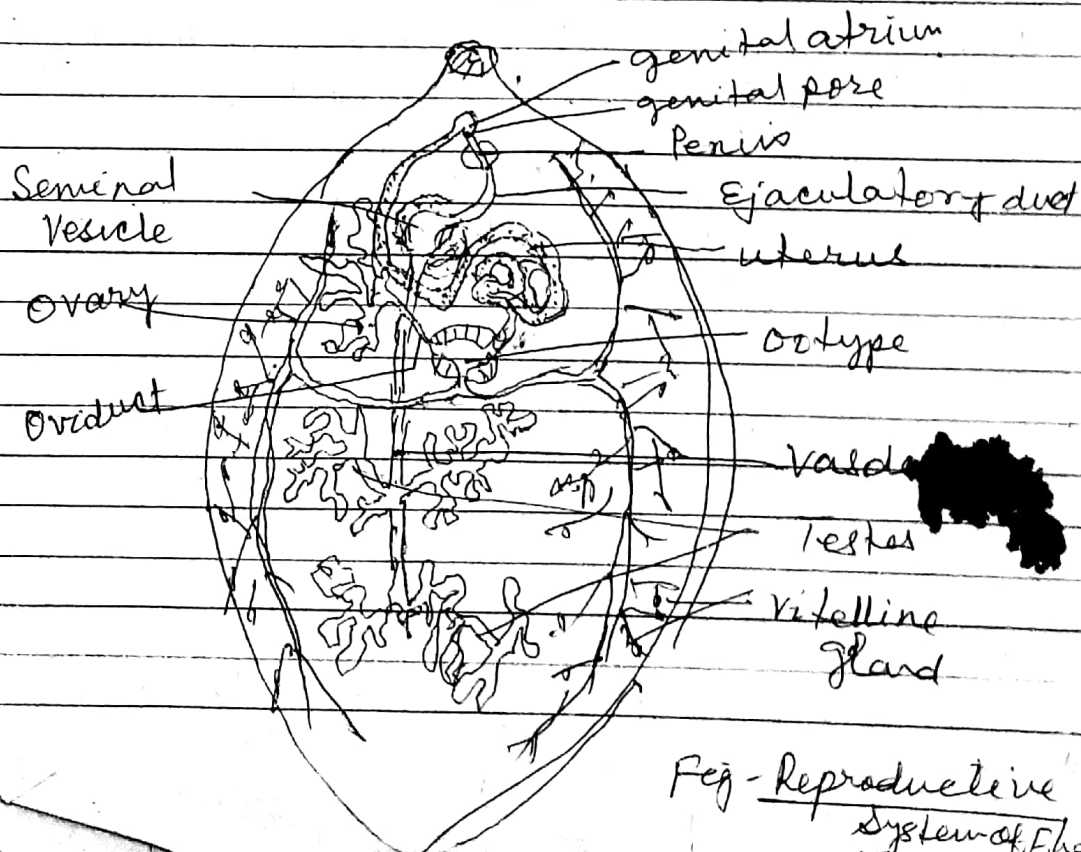 genital atrium
genital pore
Penis
Seminal
Vesicle
Ejaculatory duct
uterus
Ovary
ootype
Oviduct
Vasd
Testes
Vitelline
gland
Fig - Reproductive
System of